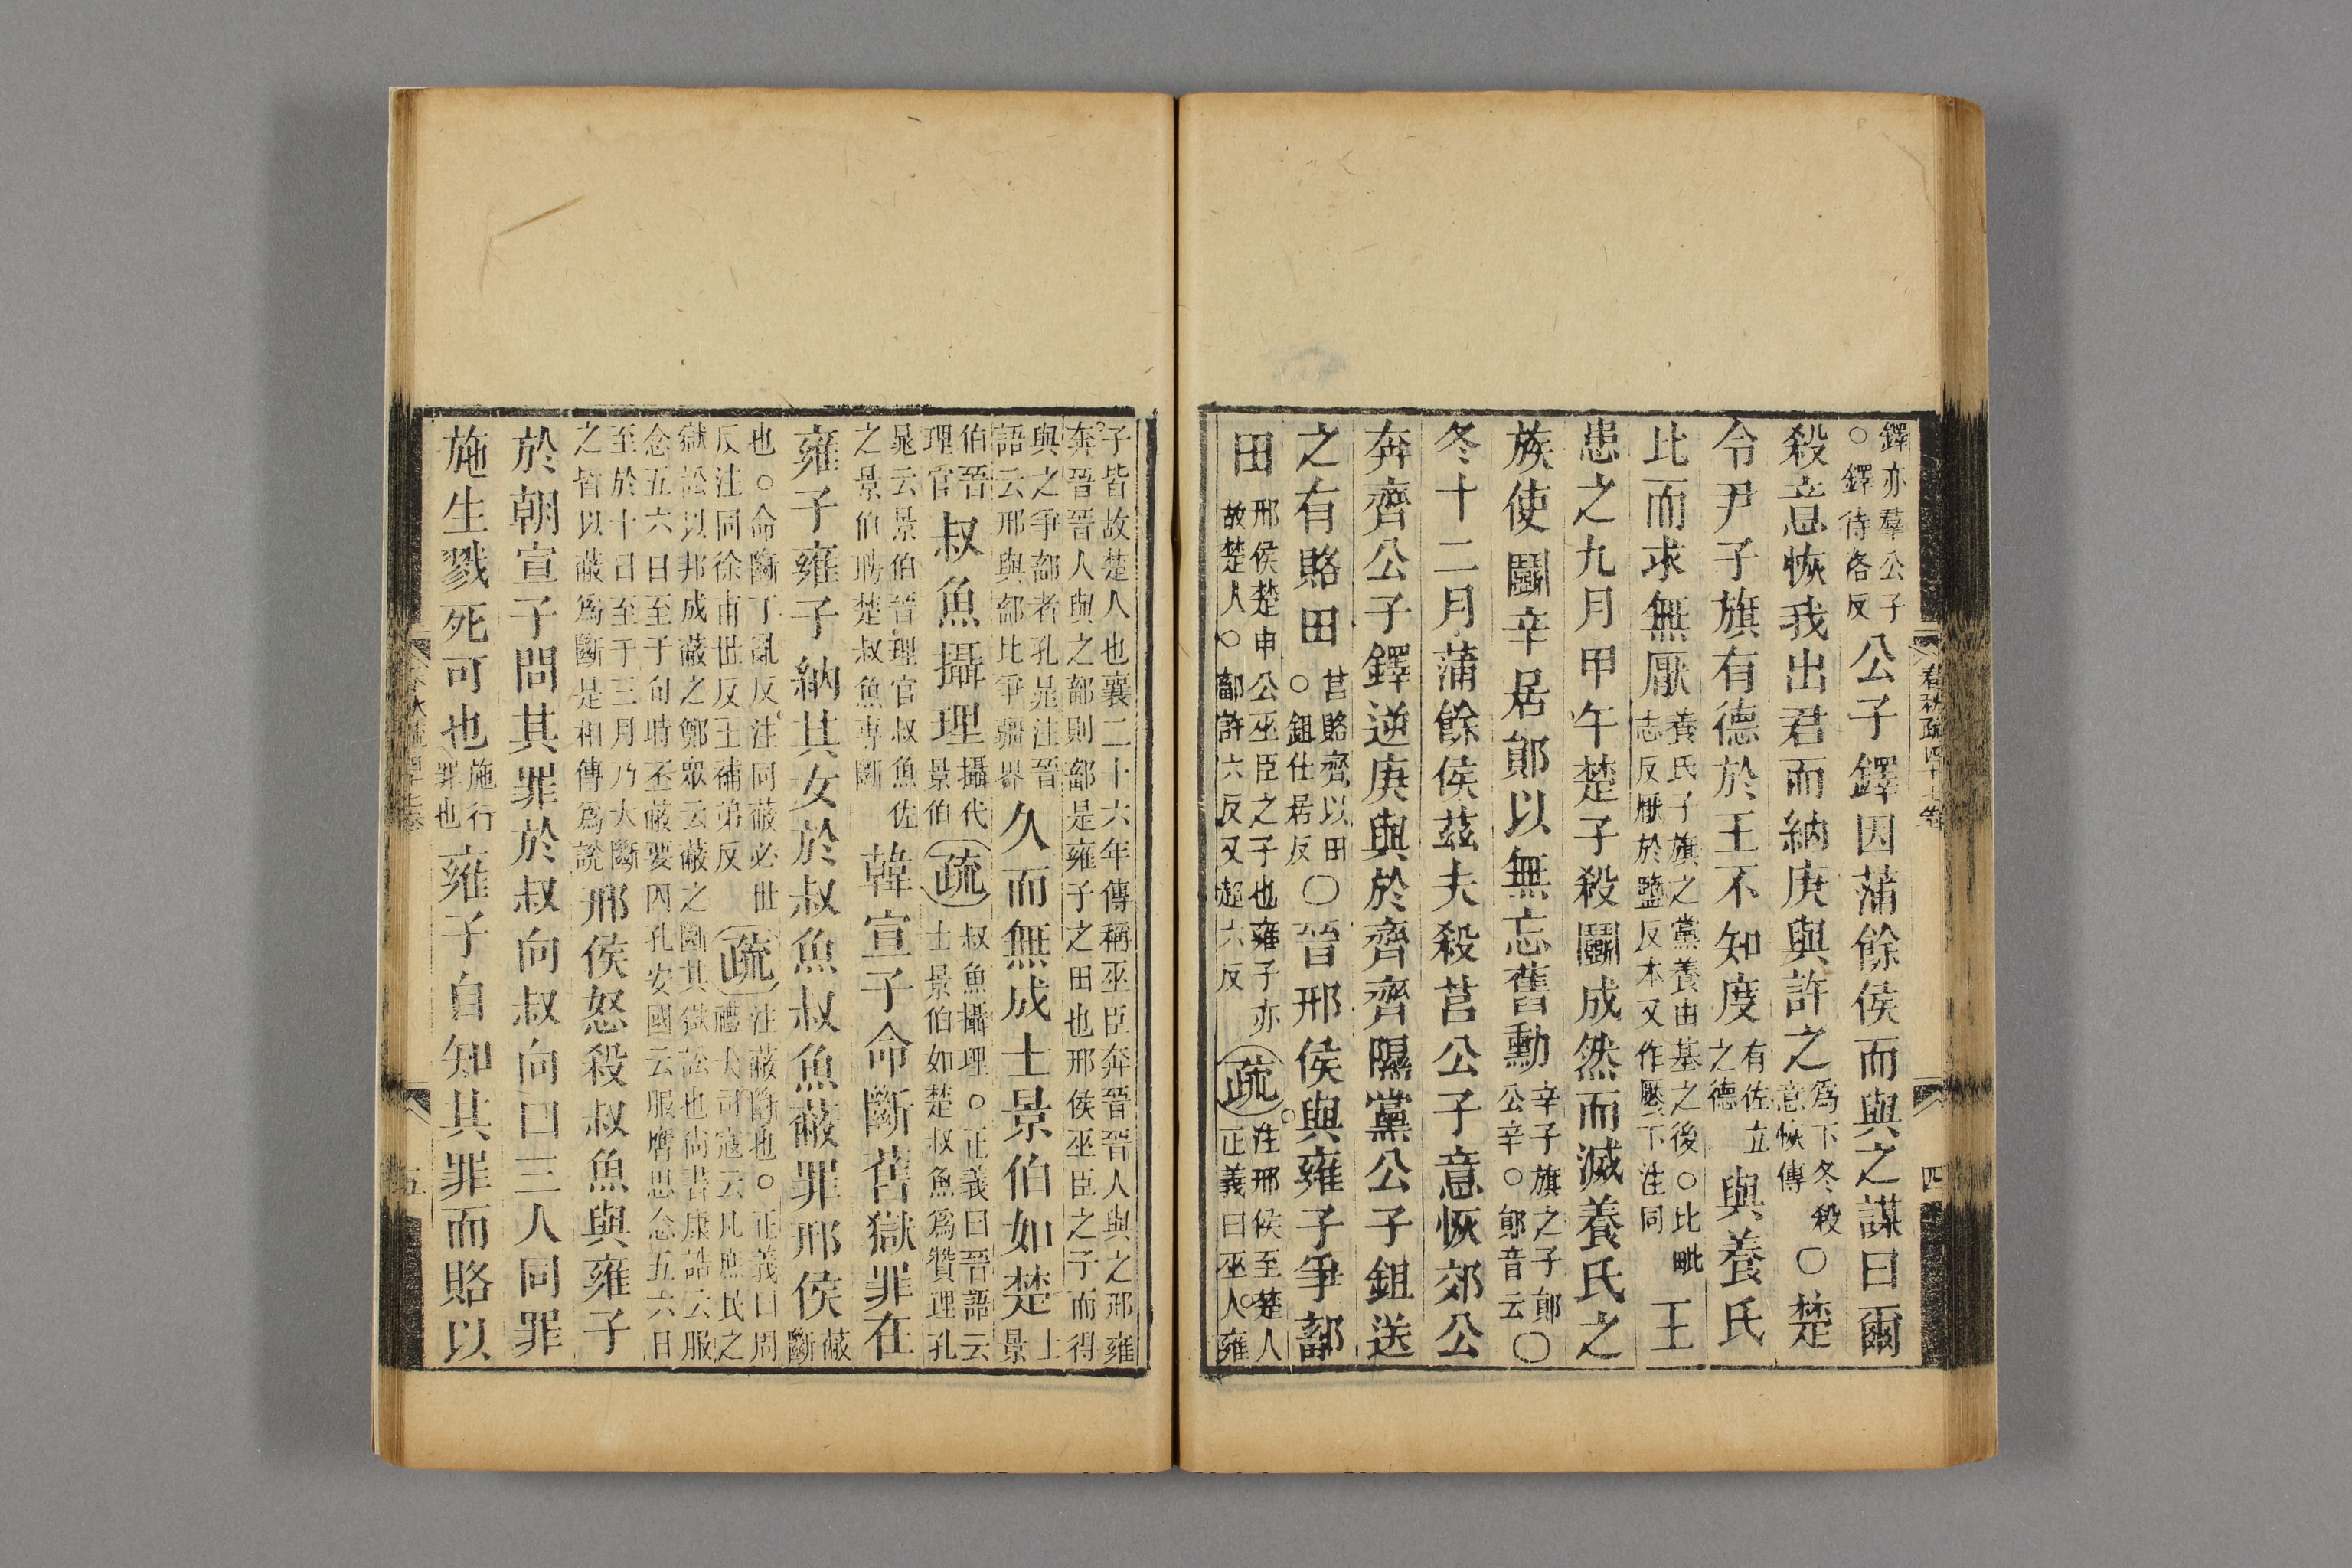 鐸亦羣公子
○鐸待洛反
公子鐸因蒲餘侯而與之謀曰爾
殺意恢我出君而納庚與許之
爲下冬殺
意恢傳
○楚
令尹子旗有德於王不知度
有佐立
之德
與養氏
比而求無厭
養氏子旗之黨養由基之後○比毗
志反厭於鹽反本又作壓下注同
王
患之九月甲午楚子殺鬭成然而滅養氏之
族使鬭辛居鄖以無忘舊勳
辛子旗之子鄖
公辛○鄖音云
○
冬十二月蒲餘侯茲夫殺莒公子意恢郊公
奔齊公子鐸逆庚與於齊齊隰黨公子鉏送
之有賂田
莒賂齊以田
○鉏仕居反
○晉邢侯與雍子爭鄐
田
邢侯楚申公巫臣之子也雍子亦
故楚人○鄐許六反又超六反
疏
注邢侯至楚人
正義曰巫人雍
春秋疏四十七卷
四
子皆故楚人也襄二十六年傳稱巫臣奔晉晉人與之邢雍
奔晉晉人與之鄐則鄐是雍子之田也邢侯巫臣之子而得
與之爭鄐者孔晁注晉
語云邢與鄐比爭疆界
久而無成士景伯如楚
士
景
伯晉
理官
叔魚攝理
攝代
景伯
疏
叔魚攝理○正義曰晉語云
士景伯如楚叔魚爲贊理孔
晁云景伯晉理官叔魚佐
之景伯聘楚叔魚專斷
韓宣子命斷舊獄罪在
雍子雍子納其女於叔魚叔魚蔽罪邢侯
蔽
斷
也○命斷丁亂反注同蔽必世
反注同徐甫世反王補弟反
疏
注蔽斷也○正義曰周
禮大司寇云凡庶民之
獄訟以邦成蔽之鄭眾云蔽之斷其獄訟也尚書康誥云服
念五六日至于旬時丕蔽要囚孔安國云服膺思念五六日
至於十日至于三月乃大斷
之皆以蔽爲斷是相傳爲說
邢侯怒殺叔魚與雍子
於朝宣子問其罪於叔向叔向曰三人同罪
施生戮死可也
施行
罪也
雍子自知其罪而賂以
五